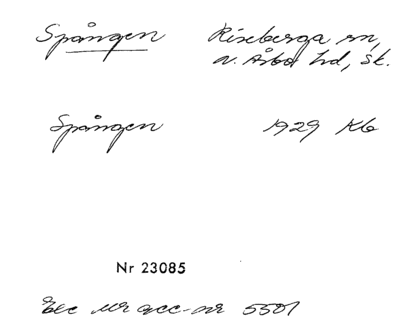 Spången Riseberga sn,
N. Åsbo hd, Sk.
Spången 1929 Kb
Nr 23085
acc-nr 5501